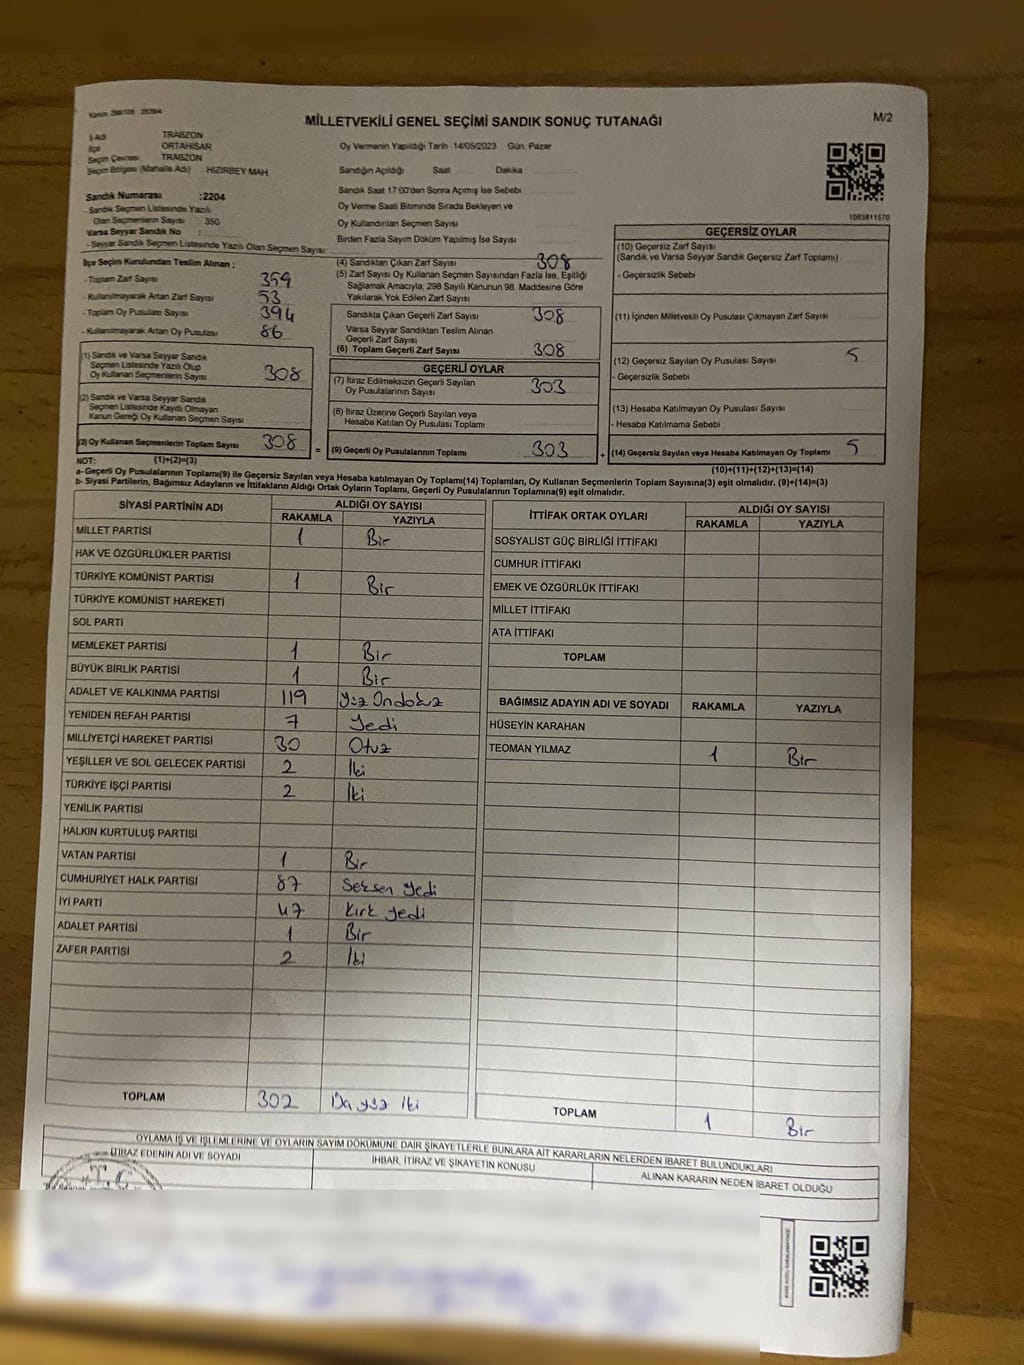 MİLLETVEKİLİ GENEL SEÇİMİ SANDIK SONUÇ TUTANAĞI
M/2
İl Adı TRABZON
İlçe ORTAHİSAR
Seçim Çevresi TRABZON
Seçim Bölgesi (Mahalle Adı) : HIZIRBEY MAH.
Sandık Numarası :2204
- Sandık Seçmen Listesinde Yazılı
Olan Seçmenlerin Sayısı : 350
Varsa Seyyar Sandık No :
- Seyyar Sandık Seçmen Listesinde Yazılı Olan Seçmen Sayısı:
Oy Vermenin Yapıldığı Tarih 14/05/2023 Gün: Pazar
Sandığın Açıldığı Saat Dakika
Sandık Saat 17:00'den Sonra Açılmış İse Sebebi
Oy Verme Saati Bitiminde Sırada Bekleyen ve
Oy Kullandırılan Seçmen Sayısı
Birden Fazla Sayım Döküm Yapılmış İse Sayısı
1083811570
İlçe Seçim Kurulundan Teslim Alınan ;
- Toplam Zarf Sayısı 359
- Kullanılmayarak Artan Zarf Sayısı 53
- Toplam Oy Pusulası Sayısı 394
- Kullanılmayarak Artan Oy Pusulası 86
(1) Sandık ve Varsa Seyyar Sandık
Seçmen Listesinde Yazılı Olup
Oy Kullanan Seçmenlerin Sayısı 308
(2) Sandık ve Varsa Seyyar Sandık
Seçmen Listesinde Kayıtlı Olmayan
Kanun Gereği Oy Kullanan Seçmen Sayısı
(3) Oy Kullanan Seçmenlerin Toplam Sayısı 308
(4) Sandıktan Çıkan Zarf Sayısı 308
(5) Zarf Sayısı Oy Kullanan Seçmen Sayısından Fazla İse, Eşitliği
Sağlamak Amacıyla; 298 Sayılı Kanunun 98. Maddesine Göre
Yakılarak Yok Edilen Zarf Sayısı
Sandıkta Çıkan Geçerli Zarf Sayısı 308
Varsa Seyyar Sandıktan Teslim Alınan
Geçerli Zarf Sayısı
(6) Toplam Geçerli Zarf Sayısı 308
GEÇERLİ OYLAR
(7) İtiraz Edilmeksizin Geçerli Sayılan
Oy Pusulalarının Sayısı 303
(8) İtiraz Üzerine Geçerli Sayılan veya
Hesaba Katılan Oy Pusulası Toplamı
= (9) Geçerli Oy Pusulalarının Toplamı 303 +
GEÇERSİZ OYLAR
(10) Geçersiz Zarf Sayısı
(Sandık ve Varsa Seyyar Sandık Geçersiz Zarf Toplamı)
- Geçersizlik Sebebi
(11) İçinden Milletvekili Oy Pusulası Çıkmayan Zarf Sayısı
(12) Geçersiz Sayılan Oy Pusulası Sayısı 5
- Geçersizlik Sebebi
(13) Hesaba Katılmayan Oy Pusulası Sayısı
- Hesaba Katılmama Sebebi
(14) Geçersiz Sayılan veya Hesaba Katılmayan Oy Toplamı 5
NOT: (1)+(2)=(3)
(10)+(11)+(12)+(13)=(14)
a- Geçerli Oy Pusulalarının Toplamı(9) ile Geçersiz Sayılan veya Hesaba katılmayan Oy Toplamı(14) Toplamları, Oy Kullanan Seçmenlerin Toplam Sayısına(3) eşit olmalıdır. (9)+(14)=(3)
b- Siyasi Partilerin, Bağımsız Adayların ve İttifakların Aldığı Ortak Oyların Toplamı, Geçerli Oy Pusulalarının Toplamına(9) eşit olmalıdır.
SİYASİ PARTİNİN ADI
ALDIĞI OY SAYISI
RAKAMLA YAZIYLA
MİLLET PARTİSİ 1 Bir
HAK VE ÖZGÜRLÜKLER PARTİSİ
TÜRKİYE KOMÜNİST PARTİSİ 1 Bir
TÜRKİYE KOMÜNİST HAREKETİ
SOL PARTİ
MEMLEKET PARTİSİ 1 Bir
BÜYÜK BİRLİK PARTİSİ 1 Bir
ADALET VE KALKINMA PARTİSİ 119 Yüz Ondokuz
YENİDEN REFAH PARTİSİ 7 Yedi
MİLLİYETÇİ HAREKET PARTİSİ 30 Otuz
YEŞİLLER VE SOL GELECEK PARTİSİ 2 İki
TÜRKİYE İŞÇİ PARTİSİ 2 İki
YENİLİK PARTİSİ
HALKIN KURTULUŞ PARTİSİ
VATAN PARTİSİ 1 Bir
CUMHURİYET HALK PARTİSİ 87 Seksen Yedi
İYİ PARTİ 47 Kırk Yedi
ADALET PARTİSİ 1 Bir
ZAFER PARTİSİ 2 İki
TOPLAM 302 Üç yüz iki
İTTİFAK ORTAK OYLARI
ALDIĞI OY SAYISI
RAKAMLA YAZIYLA
SOSYALİST GÜÇ BİRLİĞİ İTTİFAKI
CUMHUR İTTİFAKI
EMEK VE ÖZGÜRLÜK İTTİFAKI
MİLLET İTTİFAKI
ATA İTTİFAKI
TOPLAM
BAĞIMSIZ ADAYIN ADI VE SOYADI RAKAMLA YAZIYLA
HÜSEYİN KARAHAN
TEOMAN YILMAZ 1 Bir
TOPLAM 1 Bir
OYLAMA İŞ VE İŞLEMLERİNE VE OYLARIN SAYIM DÖKÜMÜNE DAİR ŞİKAYETLERLE BUNLARA AİT KARARLARIN NELERDEN İBARET BULUNDUKLARI
İTİRAZ EDENİN ADI VE SOYADI
İHBAR, İTİRAZ VE ŞİKAYETİN KONUSU
ALINAN KARARIN NEDEN İBARET OLDUĞU
T.C